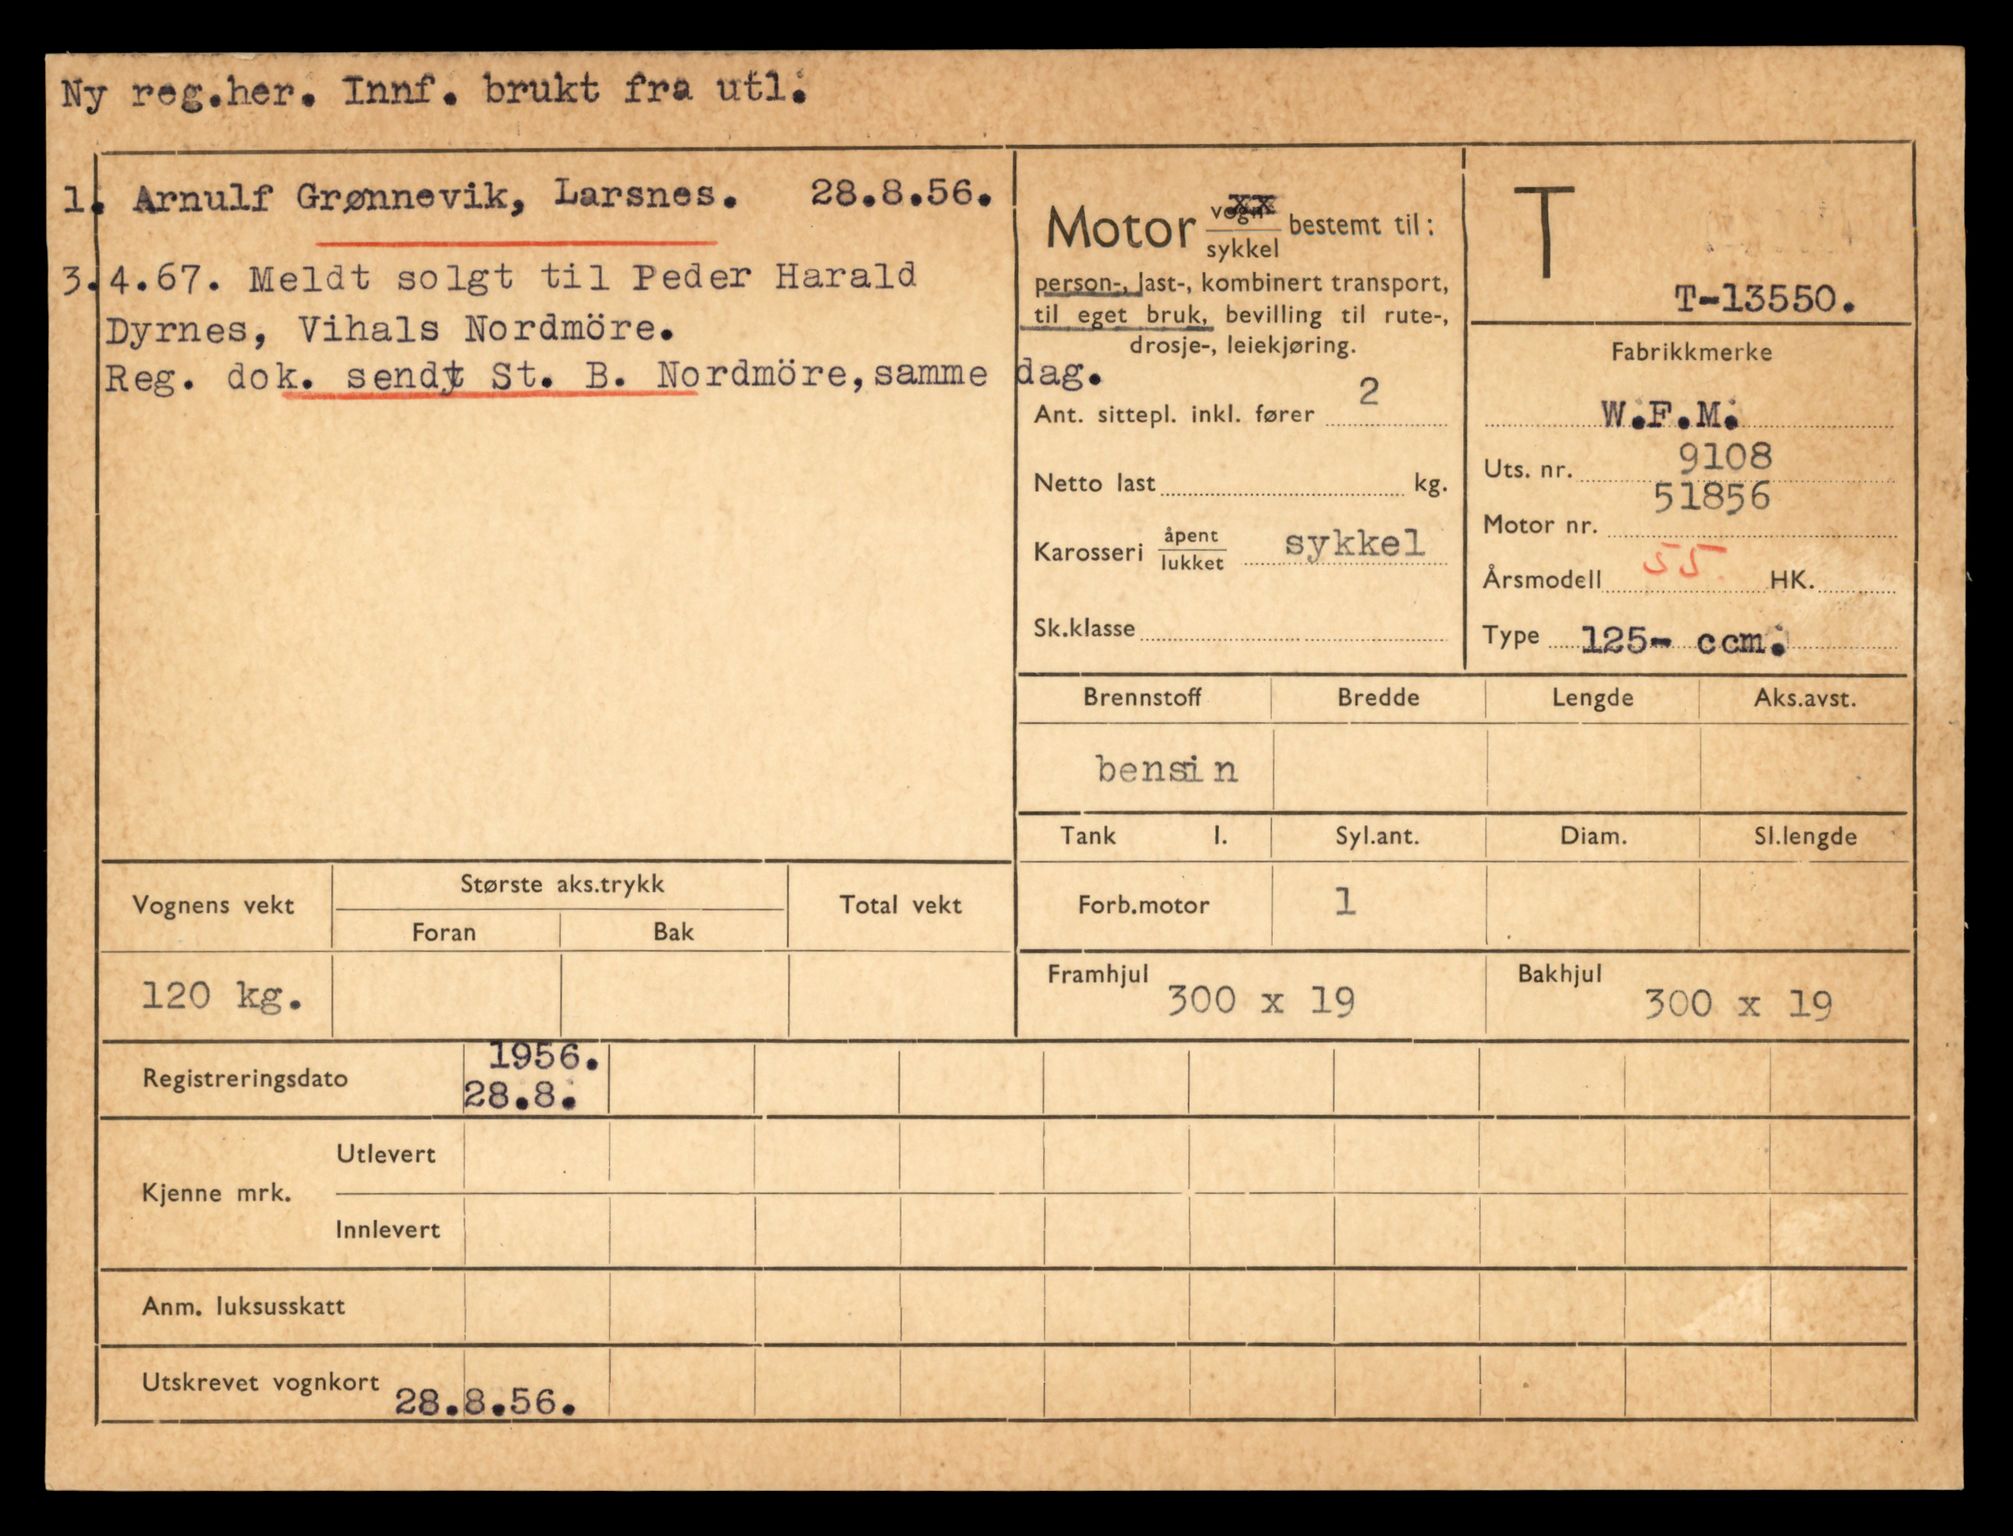 Ny reg.her. Innf. brukt fra utl.
1. Arnulf Grønnevik, Larsnes. 28.8.56.
3.4.67. Meldt solgt til Peder Harald
Dyrnes, Vihals Nordmöre.
Reg. dok. sendt St. B. Nordmöre, samme dag.
Motor vogn/sykkel bestemt til:
person-, last-, kombinert transport,
til eget bruk, bevilling til rute-,
drosje-, leiekjøring.
Ant. sittepl. inkl. fører 2
Netto last kg.
Karosseri åpent/lukket sykkel
Sk.klasse
T
T-13550.
Fabrikkmerke
W.F.M.
Uts. nr. 9108
Motor nr. 51856
Årsmodell 55 HK.
Type 125- ccm.
Brennstoff Bredde Lengde Aks.avst.
bensin
Tank l. Syl.ant. Diam. Sl.lengde
Forb.motor 1
Framhjul 300 x 19 Bakhjul 300 x 19
Vognens vekt Største aks.trykk Total vekt
Foran Bak
120 kg.
Registreringsdato 1956.
28.8.
Kjenne mrk. Utlevert
Innlevert
Anm. luksusskatt
Utskrevet vognkort 28.8.56.